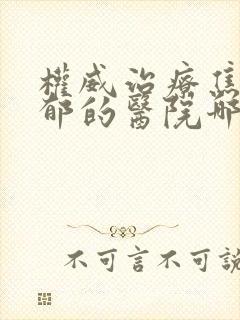 權威治療焦
郁的醫院哪
不可言不可說